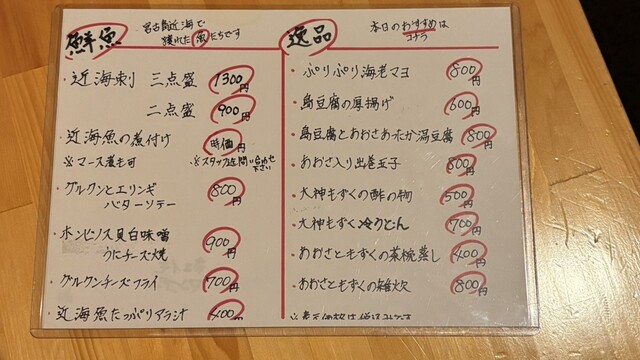 鮮魚
宮古島近海で
獲れた魚たちです
・近海刺 三点盛 1300円
二点盛 900円
・近海魚の煮付け 時価円
※マース煮も可 ※スタッフにお問い合わせ下さい
・グルクンとエリンギ 800円
バターソテー
・ホンビノス貝白味噌 900円
うにチーズ焼
・グルクンチーズフライ 700円
・近海魚たっぷりアラ汁 400円
逸品
本日のおすすめは
コチラ
・ぷりぷり海老マヨ 800円
・島豆腐の厚揚げ 600円
・島豆腐とあおさあんかけ湯豆腐 800円
・あおさ入り出巻玉子 800円
・大神もずくの酢の物 500円
・大神もずく冷うどん 700円
・あおさともずくの茶碗蒸し 400円
・あおさともずくの雑炊 800円
※表示価格は税込みです